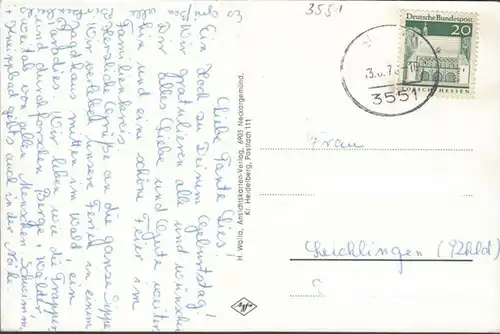 3551
Deutsche Bundespost
20
LORSCH/HESSEN
3551
Liebe Tante Lies!
Ein Hoch zu Deinem Geburtstag!
Wir gratulieren alle und wünschen
Dir alles Liebe und Gute weiter-
hin und eine schöne Feier im
Familienkreis.
Herzliche Grüße an die ganze Sippe
Wir verleben unsere Ferien in einem
Landhaus mitten im Wald ein
Paradies. Wir leben wie die Trapper
und durchforschen Berge, Wälder,
weitab von allen Menschen. Schwimm
+ Kneippbad gibts auch in der Nähe.
H. Walla, Ansichtskarten-Verlag, 6903 Neckargemünd,
Kr. Heidelberg, Postfach 111
Agfa
Frau
Leichlingen (Rhld)